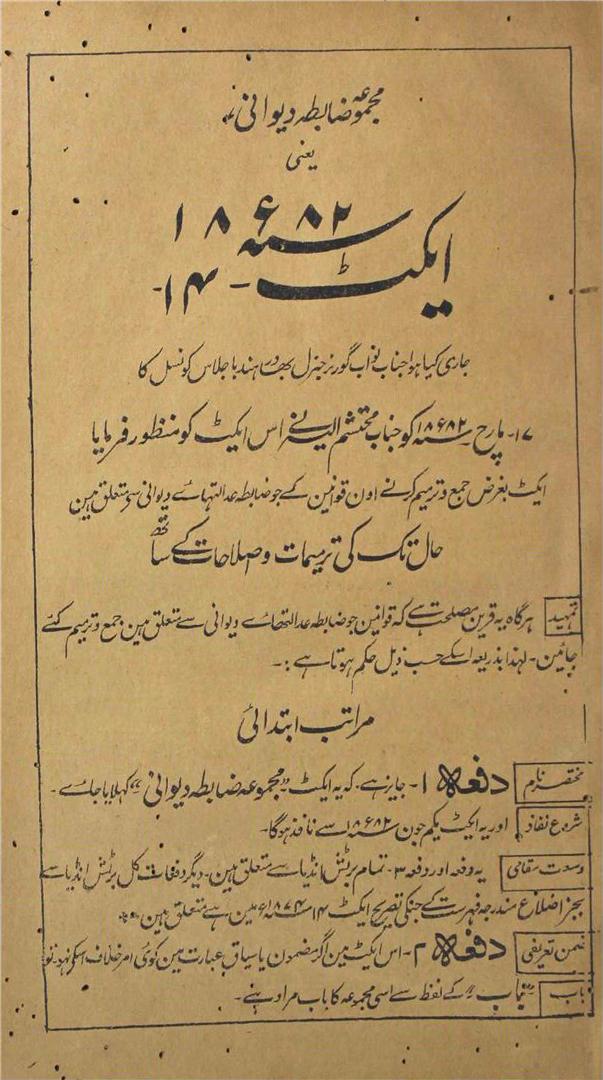 مجموعہ ضابطہ دیوانی
یعنی
سنہ ۱۸۸۲ء
ایکٹ - ۱۴-
جاری کیا ہوا جناب نواب گورنر جنرل بہادر ہند باجلاس کونسل کا
۱۷- مارچ سنہ ۱۸۸۲ء کو جناب محتشم الیہ نے اس ایکٹ کو منظور فرمایا
ایکٹ بغرض جمع و ترمیم کرنے اون قوانین کے جو ضابطہ عدالتہاے دیوانی سے متعلق ہین
حال تک کی ترمیمات و اصلاحات کے ساتھ
تمہید ہرگاہ یہ قرین مصلحت ہے کہ قوانین جو ضابطہ عدالتہاے دیوانی سے متعلق ہین جمع و ترمیم کئے
جائین - لہذا بذریعہ اسکے حسب ذیل حکم ہوتا ہے :-
مراتب ابتدائی
مختصر نام دفعہ ۱- جایز ہے کہ یہ ایکٹ "مجموعہ ضابطہ دیوانی" کہلایا جاے -
شروع نفاذ اور یہ ایکٹ یکم جون سنہ ۱۸۸۲ء سے نافذ ہوگا -
وسعت مقامی یہ دفعہ اور دفعہ ۳- تمام برٹش انڈیا سے متعلق ہین - دیگر دفعات کل برٹش انڈیا سے
بجز اضلاع مندرجہ فہرست کے جنکی تصریح ایکٹ ۱۴ سنہ ۱۸۷۴ء مین ہے متعلق ہین
ضمن تعریفی دفعہ ۲- اس ایکٹ مین اگر مضمون یا سیاق عبارت مین کوئی امر خلاف اسکے نہو - تو
باب - "باب" کے لفظ سے اسی مجموعہ کا باب مراد ہے -